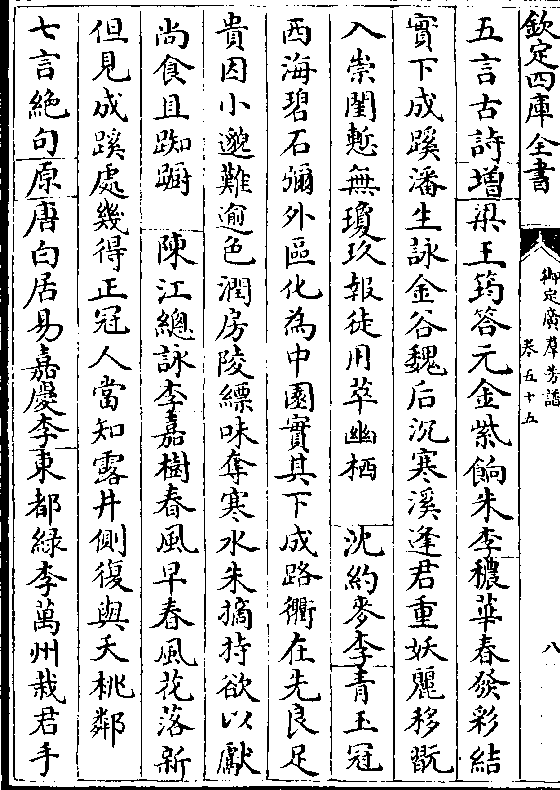 欽定四庫全書
御定廣羣芳譜
卷五十五
八
五言古詩增梁王筠答元金紫餉朱李穠華春發彩結
實下成蹊潘生詠金谷魏后沉寒溪逢君重妖麗移翫
入崇閨慙無瓊玖報徒用萃幽栖　沈約麥李青玉冠
西海碧石彌外區化為中園實其下成路衢在先良足
貴因小邈難逾色潤房陵縹味奪寒水朱摘持欲以獻
尚食且踟躕　陳江總詠李嘉樹春風早春風花落新
但見成蹊處幾得正冠人當知露井側復與夭桃鄰
七言絶句原唐白居易嘉慶李東都綠李萬州栽君手